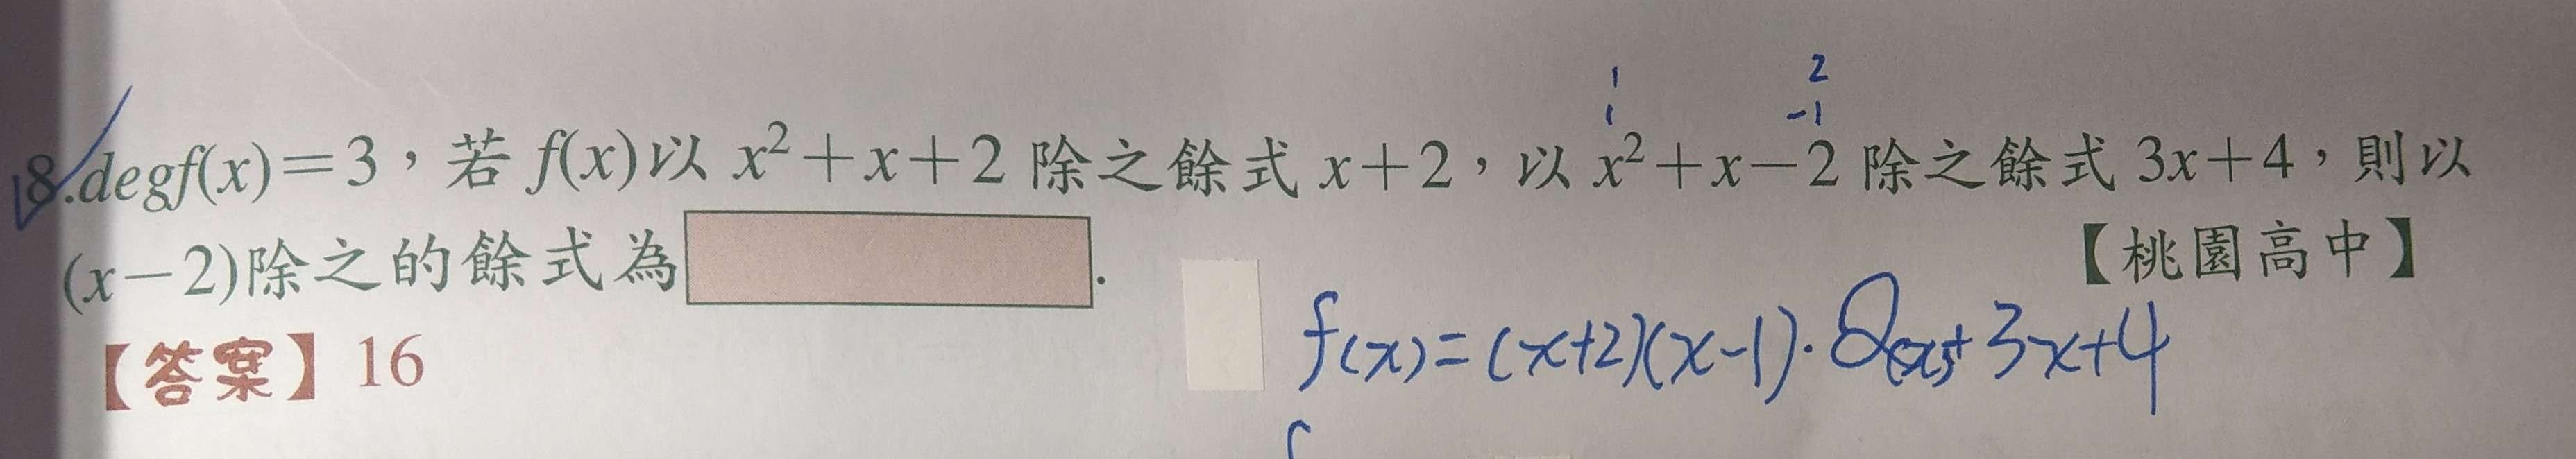 1 2
1 -1
18.degf(x)=3，若 f(x)以 x²+x+2 除之餘式 x+2，以 x²+x-2 除之餘式 3x+4，則以
(x-2)除之的餘式為 .
【桃園高中】
【答案】16
f(x)=(x+2)(x-1)·Q(x)+3x+4